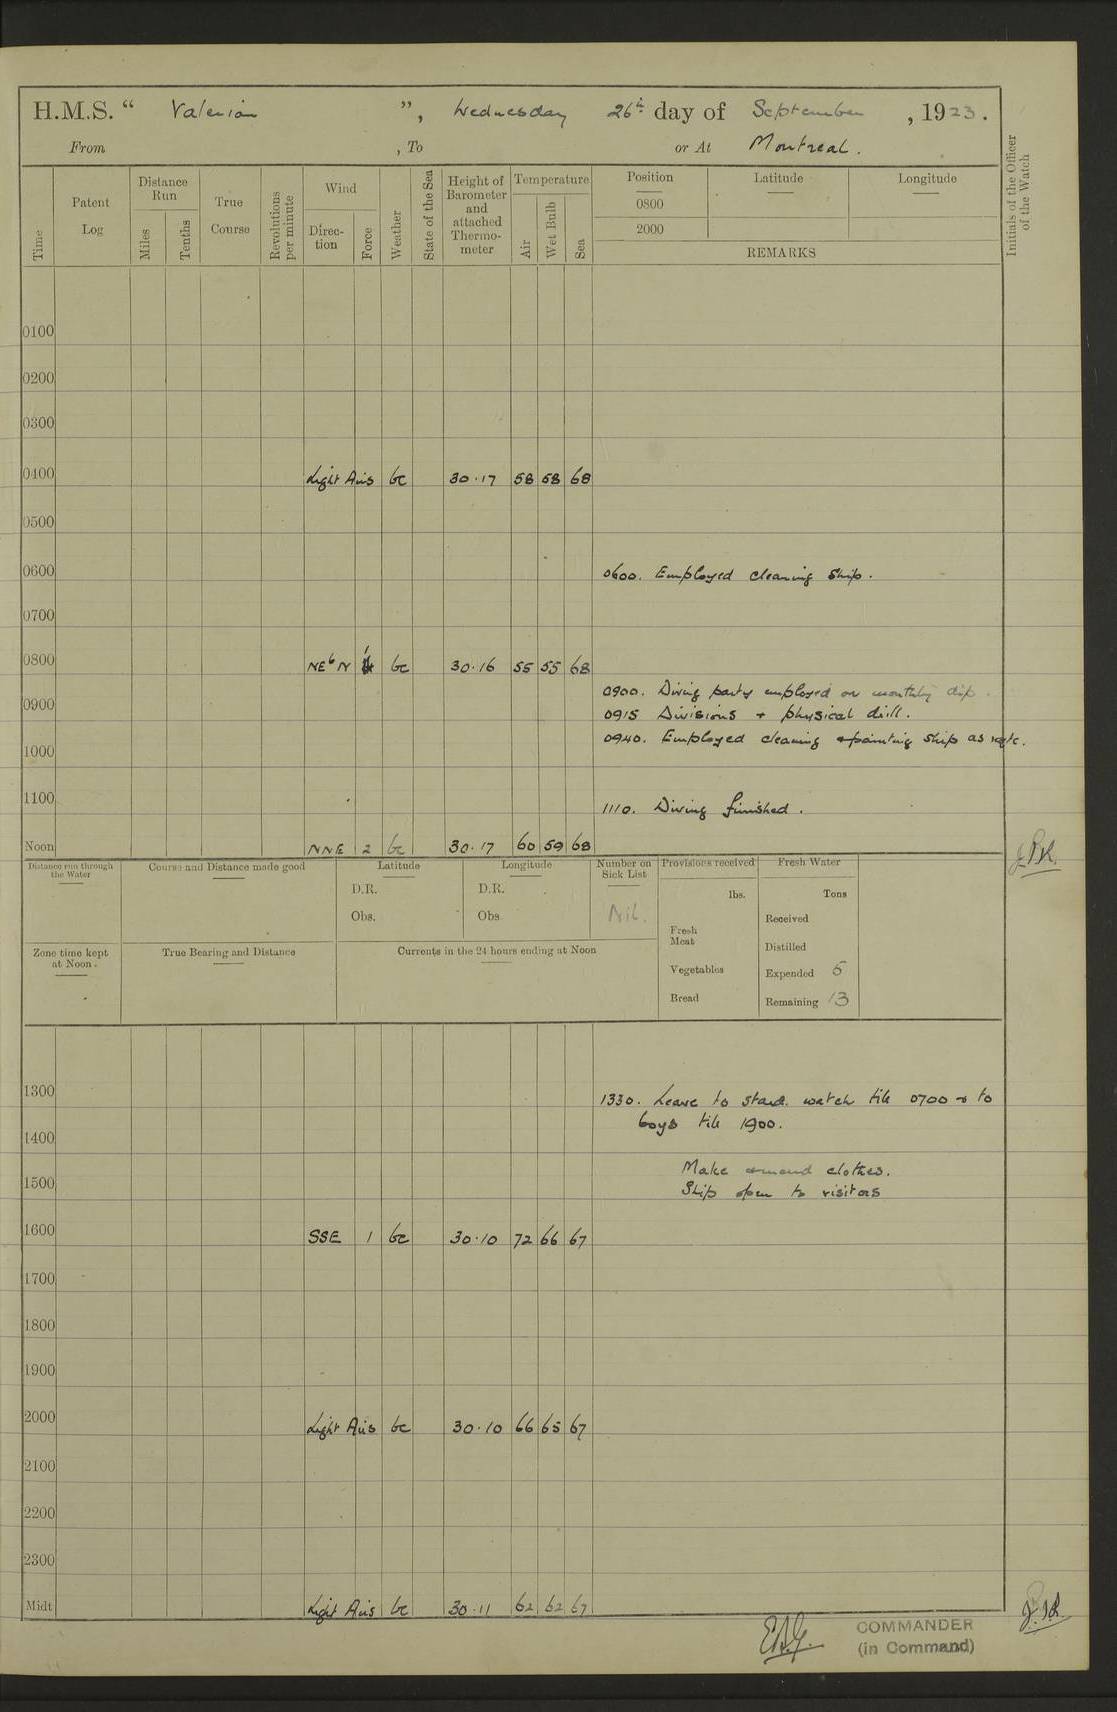 H.M.S. “ Valerian ”, Wednesday 26th day of September, 1923.
From , To or At Montreal.
Time
Patent Log
Distance Run
Miles
Tenths
True Course
Revolutions per minute
Wind
Direc-tion
Force
Weather
State of the Sea
Height of Barometer and attached Thermo-meter
Temperature
Air
Wet Bulb
Sea
Position Latitude Longitude
0800
2000
REMARKS
Initials of the Officer of the Watch
0100
0200
0300
0400 Light Airs bc 30.17 58 58 68
0500
0600 0600. Employed cleaning ship.
0700
0800 NEbN 1 bc 30.16 55 55 68
0900. Diving party employed on monthly dip.
0900 0915 Divisions + physical drill.
0940. Employed cleaning + painting ship as reqte.
1000
1100 1110. Diving finished.
Noon NNE 2 bc 30.17 60 59 68
Distance run through the Water
Course and Distance made good
Latitude
D.R.
Obs.
Longitude
D.R.
Obs
Number on Sick List
Nil.
Provisions received
lbs.
Fresh Meat
Vegetables
Bread
Fresh Water
Tons
Received
Distilled
Expended 5
Remaining 13
Zone time kept at Noon.
True Bearing and Distance
Currents in the 24 hours ending at Noon
1300 1330. Leave to starb. watch till 0700 + to
boys till 1900.
1400
Make + mend clothes.
1500 Ship open to visitors
1600 SSE 1 bc 30.10 72 66 67
1700
1800
1900
2000 Light Airs bc 30.10 66 65 67
2100
2200
2300
Midt Light Airs bc 30.11 62 62 67
COMMANDER
(in Command)